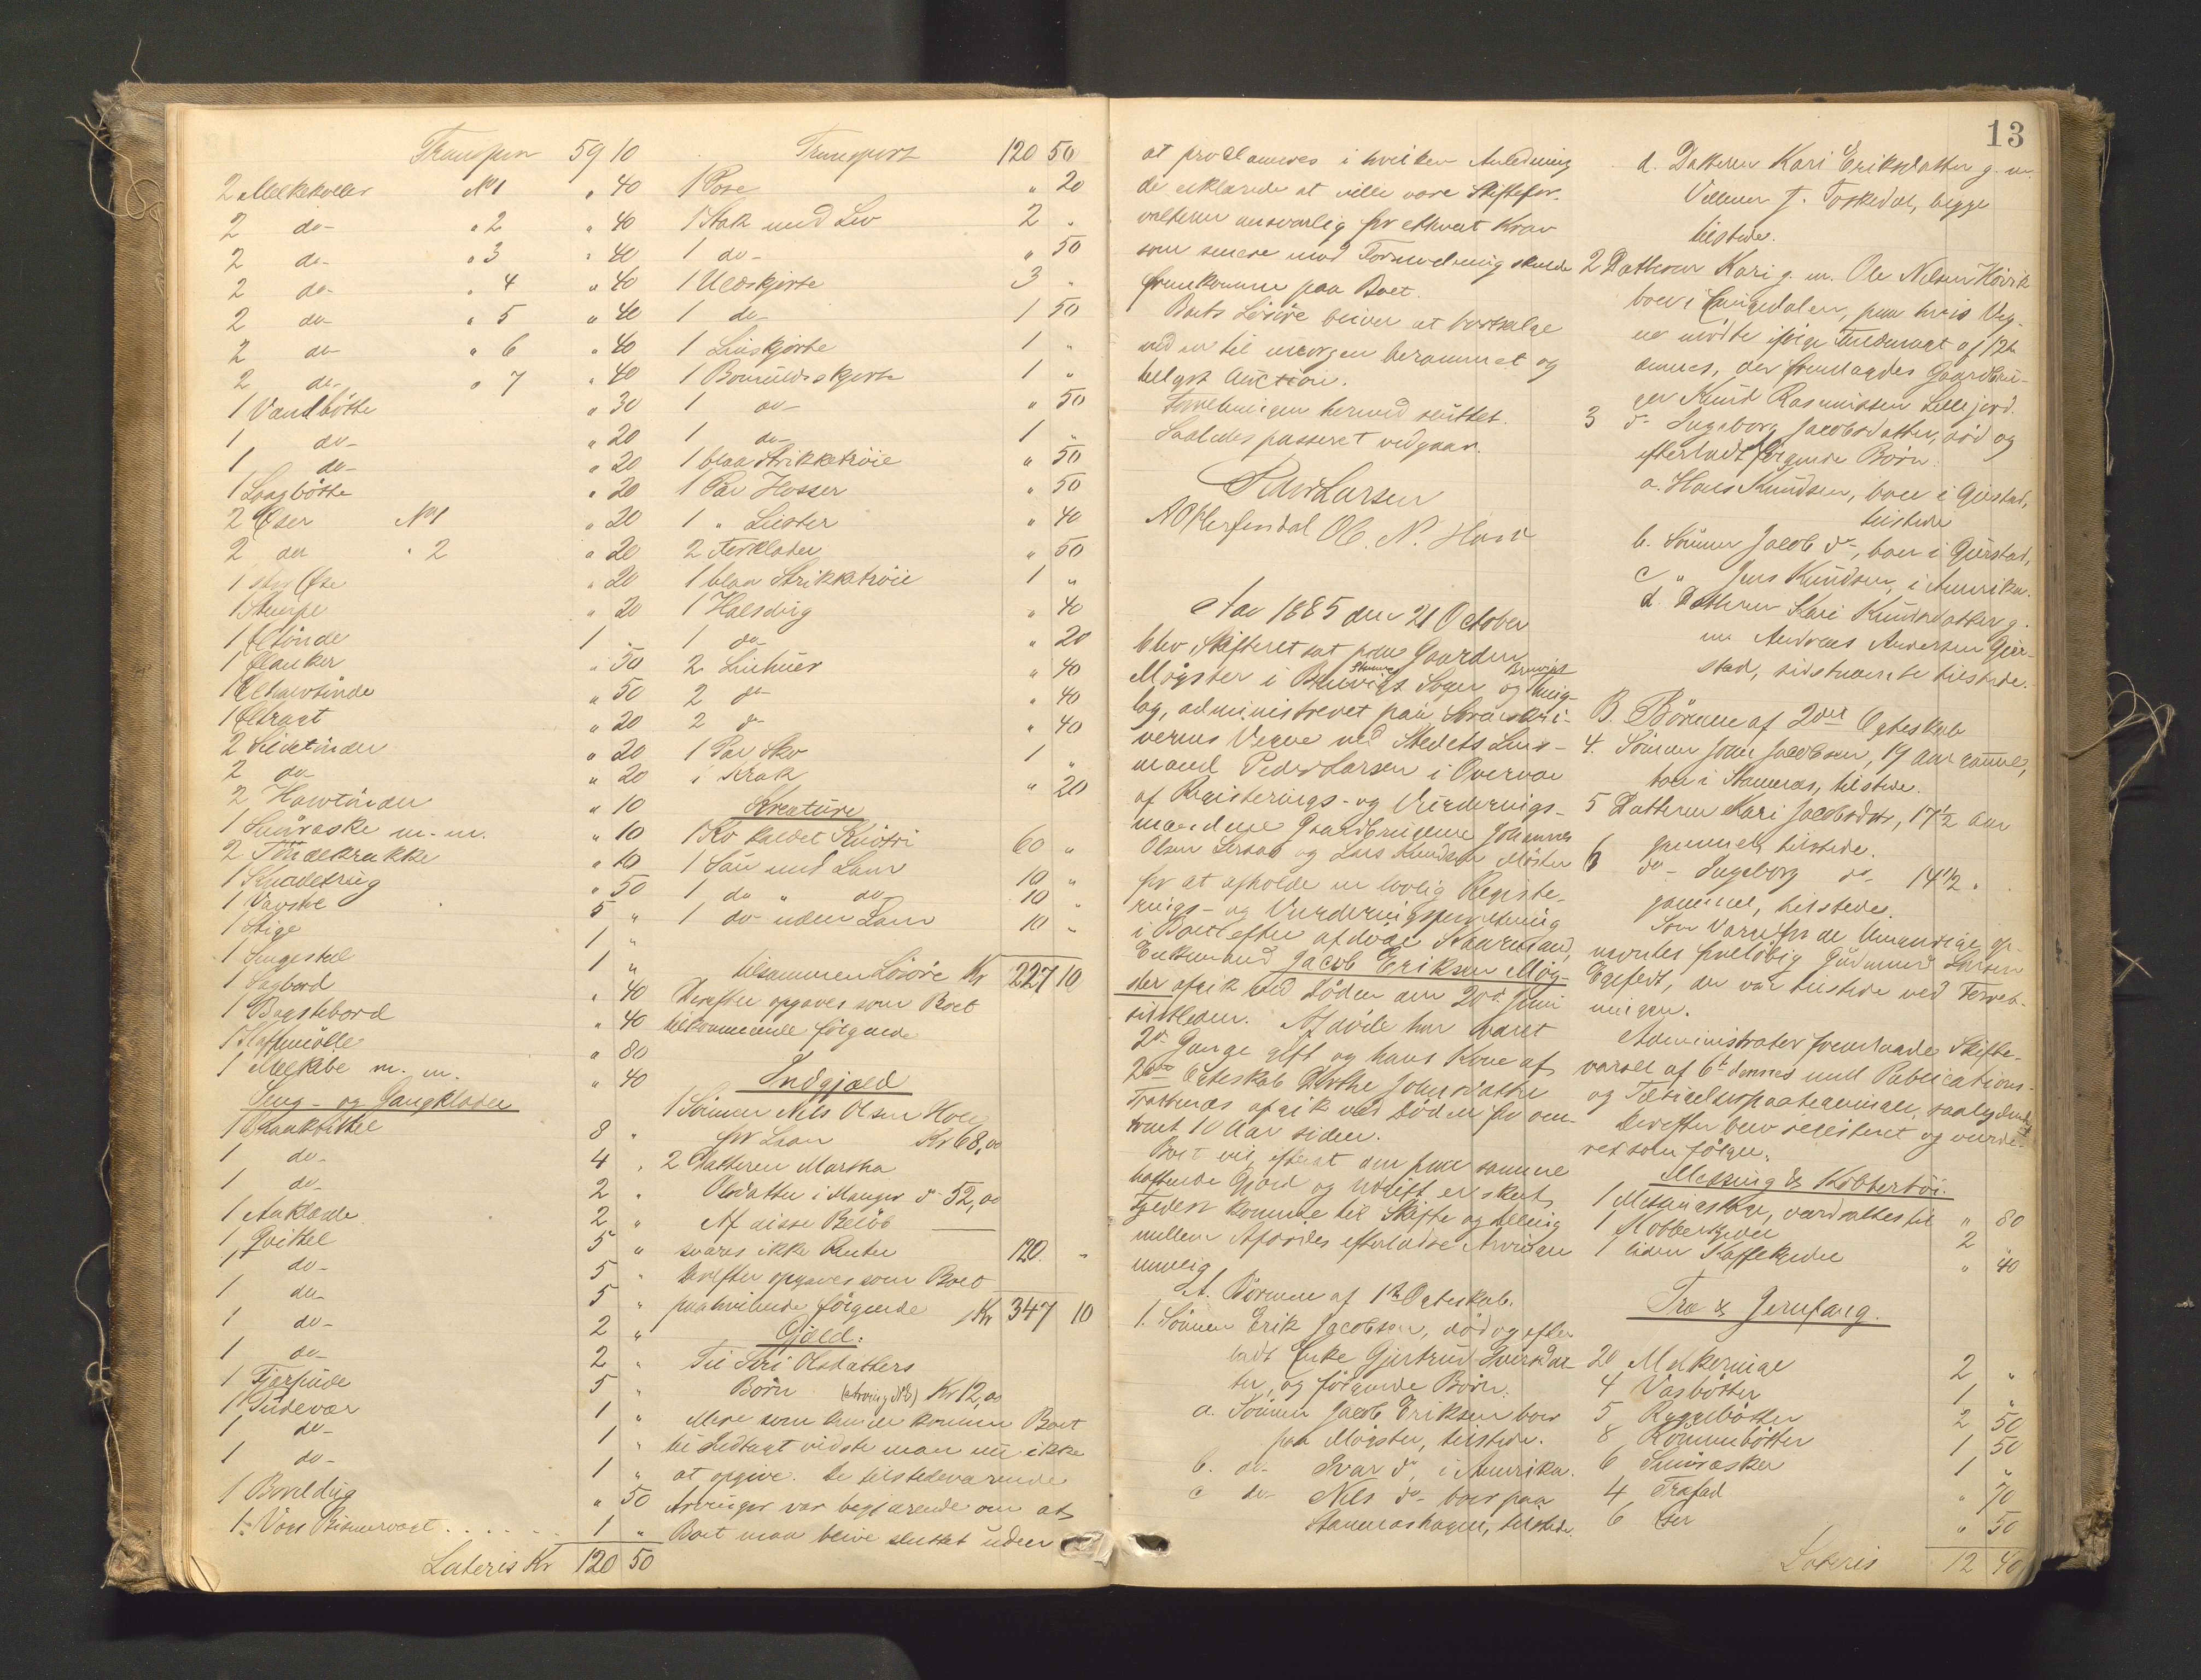 Transport 59 10
2 Melkekoller No 1 " 40
2 do- " 2 " 40
2 do- " 3 " 40
2 do- " 4 " 40
2 do " 5 " 40
2 do " 6 " 40
2 do- " 7 " 40
1 Vandbötte " 30
1 do- " 20
1 do- " 20
1 Laagbötte " 20
2 Öser No 1 " 20
2 do " 2 " 20
1 Öse " 20
1 Stampe " 20
1 Öltönde 1 "
1 Ölanker " 50
1 Ölhalvtönde " 50
1 Öltragt " 20
2 Sildetönder " 20
2 do " 20
2 Halvtönder " 10
1 Smöræske m. m. " 10
2 Töndekrakke " 10
1 Knadetrug " 50
1 Vævstol 5 "
1 Stige 1 "
1 Sengested 1 "
1 Lagbord " 40
1 Bagstebord " 40
1 Kaffemölle " 80
1 m. m. " 40
Seng- og Gangklæder
1 8 "
1 do- 4 "
1 do- 2 "
1 Aaklæde 2 "
1 Qvittel 5 "
1 do- 5 "
1 do- 5 "
1 do- 2 "
1 do- 2 "
1 Fjærpude 5 "
1 Pudevær 1 "
1 do- 1 "
1 do- 1 "
1 Borddug " 50
1 Bismervægt 1 "
Lateris Kr 120 50
Transport 120 50
1 Pose " 20
1 Stak med Liv 2 "
1 do- " 50
1 Uldskjorte 3 "
1 do- 1 50
1 Linskjorte 1 "
1 Bomuldsskjorte 1 "
1 do- " 50
1 do- 1 "
1 blaa Strikketröie " 50
1 Par Hosser " 50
1 " Lester " 40
2 Forklæder " 50
1 blaa Strikketröie 1 "
1 Halsdug " 40
1 do- " 20
2 Linhuer " 40
2 do " 40
2 do " 40
1 Par Sko 1 "
1 Krak " 20
Kreature
1 Ko kaldet 60 "
1 Sau med Lam 10 "
1 do " do 10 "
1 do uden Lam 10 "
tilsammen Lösöre Kr 227 10
Derefter opgaves som Boet
tilkommende fölgende
Indgjæld
1 Sönnen Nils Olsen
for Laan Kr 68,00
2 Datteren Martha
Olsdatter i Manger do 52,00
Af disse Belöb
svares ikke Renter 120 "
Derefter opgaves som Boet
paahvilende fölgende Kr 347 10
Gjæld:
Til Siri Olsdatters
Börn Kr 12,00
Mere som kunde komme Boet
til Indtægt vidste man nu ikke
at opgive. De tilstedeværende
Arvinger var begjærende om at
Boet maa blive sluttet uden
at proclameres i hvilken Anledning
de erklærede at ville være Skiftefor-
valteren ansvarlig for ethvert Krav
som senere mod Formodning skulde
fremkomme paa Boet.
Boets Lösöre bliver at bortsælge
ved en til imorgen berammet og
belyst Auction.
Forretningen hermed sluttet.
Saaledes passeret vedgaar.
Peder Larsen
Ole N.
Aar 1885 den 21 October
blev Skifteret sat paa Gaarden
Mögster i Sogn og Bruvigs Thing-
lag, administreret paa Sorenskri-
verens Vegne ved Stedets Lens-
mand Peder Larsen i Overvær
af Registerings- og Vurderings-
mændene Gaardbrugerne Johannes
Olsen og Lars Knudsen Möster
for at afholde en lovlig Registe-
rings- og Vurderingsforretning
i Boet efter afdöde Kaarmand,
Enkemand Jacob Eriksen Mög-
ster afgik ved Döden den 20de Juni
sidstleden. Afdöde har været
2de Gange gift og hans Kone af
2det Egteskab Dorthe Johnsdatter
afgik ved Döden for om-
trent 10 Aar siden.
Boet vil, efterat den paa samme
hæftende Gjæld og Udgift er skeet
Fyldest komme til Skifte og Deling
mellem Afdödes efterladte Arvinger
nemlig
A. Börnene af 1ste Egteskab.
1. Sönnen Erik Jacobsen, död og efter
ladt Enke Gjertrud Iversdat-
ter, og fölgende Börn:
a. Sönnen Jacob Eriksen boer
paa Mögster, tilstede.
b. do- Ivar do, i Amerika.
c do- Nils do- boer paa
Stamneshagen, tilstede.
13
d. Datteren Kari Eriksdatter g. m.
Villum J. Toskedal, begge
tilstede.
2 Datteren Kari g. m. Ole Nilsen Hövik
boer i Eningdalen, paa hvis Veg-
ne mödte ifölge Fuldmagt af 12te
dennes, der fremlagdes Gaardbru-
ger Knud Rasmussen Lillejord.
3 do- Ingeborg Jacobsdatter, död og
efterladt fölgende Börn:
a. Hans Knudsen, boer i Gjerstad,
tilstede
b. Sönnen Jacob do-, boer i Gjerstad,
c " Jens Knudsen, i Amerika.
d. Datteren Kari Knudsdatter g.
m. Andreas Andersen Gjer-
stad, sidstnævnte tilstede.
B. Börnene af 2det Egteskab
4. Sönnen John Jacobsen, 19 Aar gammel,
boer i Stamnes, tilstede.
5 Datteren Kari Jacobsdtr, 17½ Aar
gammel, tilstede.
6 do- Ingeborg do- 14½ "
gammel, tilstede.
Som Værge for de Umyndige op-
nævntes foreløbig Gudmund Larsen
Egefedt, der var tilstede ved Forret-
ningen.
Administrator fremlagde Skifte-
varsel af 6te dennes med Publications-
og Tætigelsespaategninger, saalydende
Derefter blev registeret og vurde-
ret som fölger:
Messing & Kobbertöi.
1 Messingstage, værdsattes til " 80
1 Kobberkjedel 2 "
1 liden Kaffekjedel " 40
Træ & Jernfang.
20 Melkeringe 2 "
4 Vasbötter 1 "
5 Ryggebötter 2 50
8 Römmebötter 1 50
6 Smöræsker 1 "
4 Træfad " 70
6 Öser " 50
Lateris 12 40